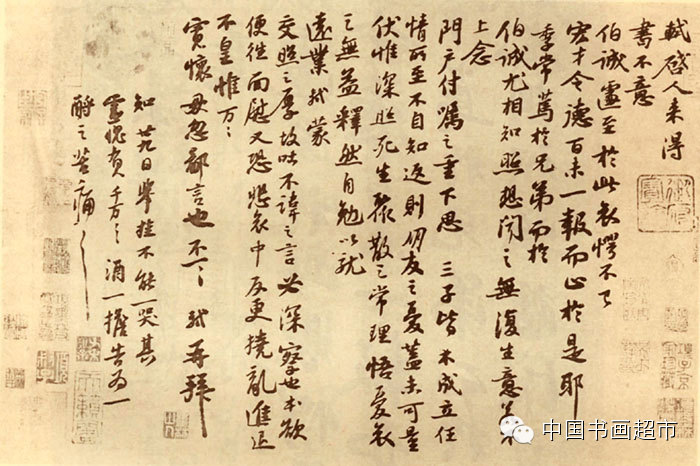 軾啓人来得
書不意
伯誠遽至於此哀愕不已
宏才令德百未一報而止於是耶
季常篤於兄弟而於
伯誠尤相知照想聞之無復生意若不
上念
門户付囑之重下思三子皆不成立任
情所至不自知返則朋友之憂蓋未可量
伏惟深照死生聚散之常理悟憂哀
之無益釋然自勉以就
遠業軾蒙
交照之厚故吐不諱之言必深察也本欲
便往面慰又恐悲哀中反更撓亂進退
不皇惟万〻
寬懷毋忽鄙言也不一〻軾再拜
知廿九日舉挂不能一哭其
靈愧負千万〻酒一擔告為一
酹之苦痛〻
中国书画超市